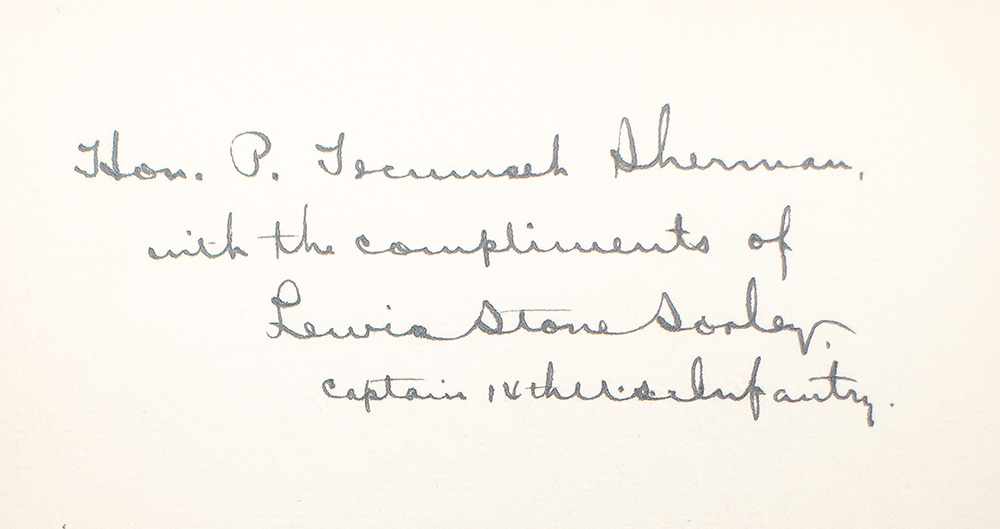 Hon. P. Tecumseh Sherman,
with the compliments of
Lewis Stone Sorley.
Captain 14th U.S. Infantry.